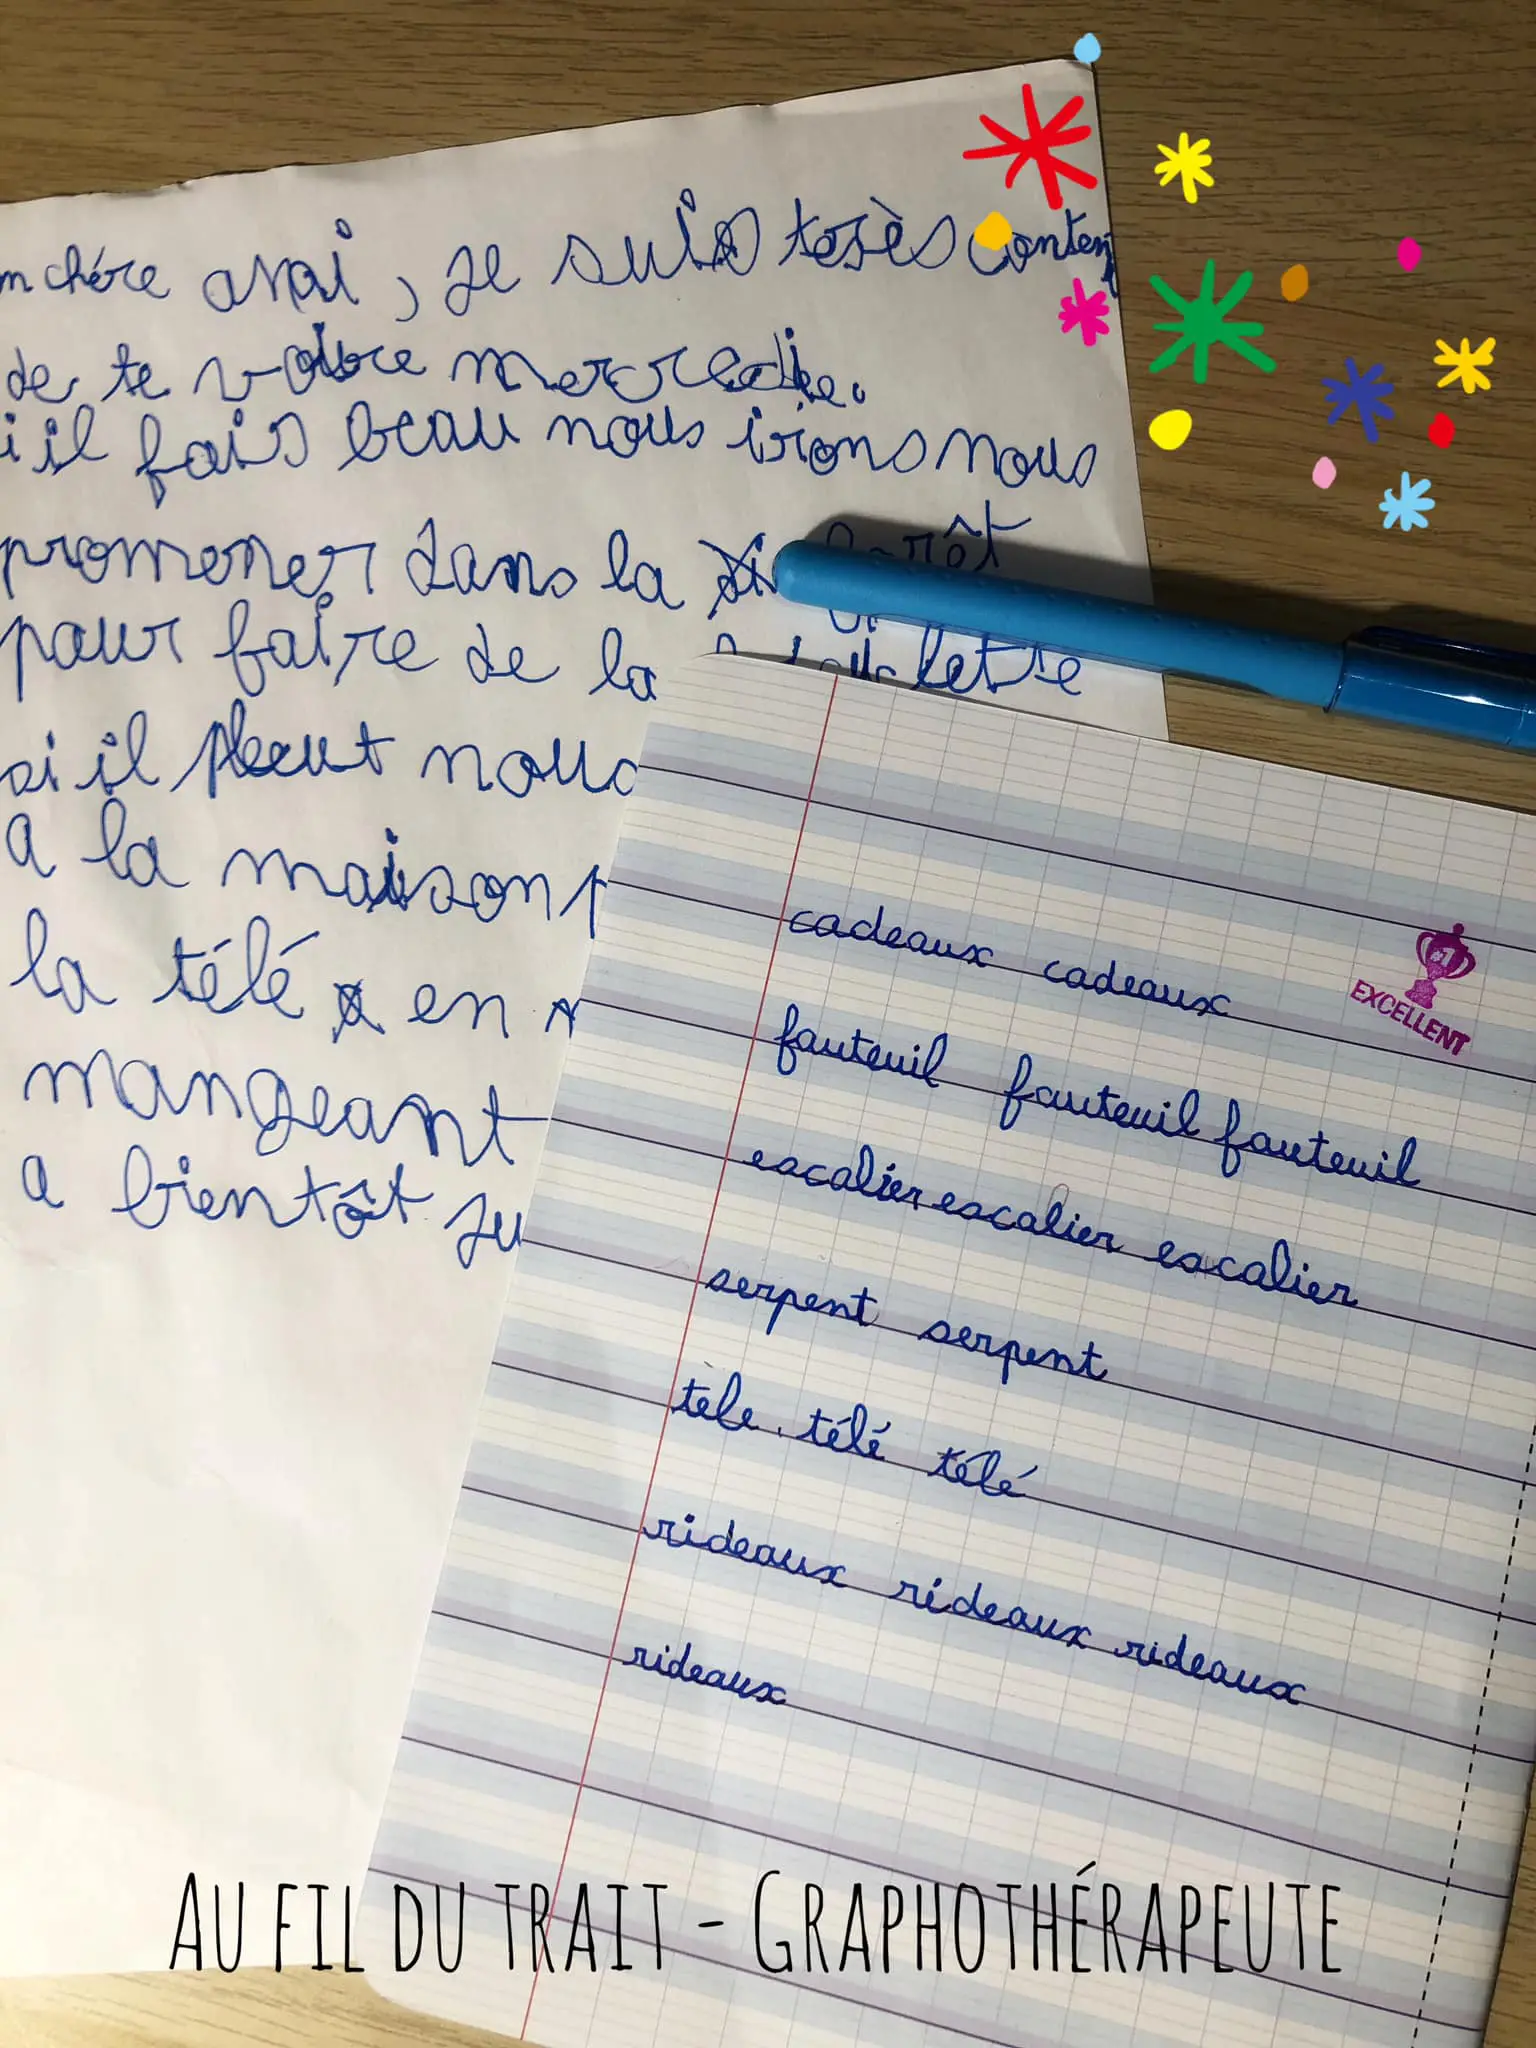 chére anai, je suis très content
de te voire mercredie.
i il fais beau nous irons nous
promener dans la forêt
pour faire de la
si il pleut nous
a la maison p
la télé en
mangeant
a bientôt Ju
cadeaux cadeaux
#1
EXCELLENT
fauteuil fauteuil fauteuil
escalier escalier escalier
serpent serpent
tele. télé télé
rideaux rideaux rideaux
rideaux
AU FIL DU TRAIT - GRAPHOTHÉRAPEUTE